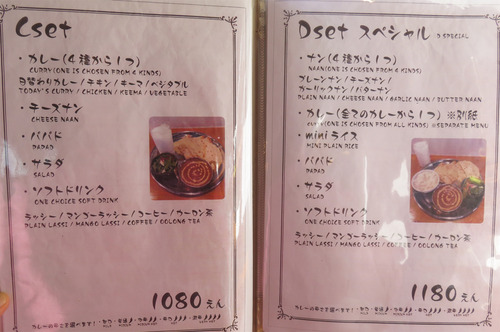 Cset
・カレー(4種から1つ)
CURRY(ONE IS CHOSEN FROM 4 KINDS)
日替わりカレー/チキン/キーマ/ベジタブル
TODAY'S CURRY / CHICKEN / KEEMA / VEGETABLE
・チーズナン
CHEESE NAAN
・パパド
PAPAD
・サラダ
SALAD
・ソフトドリンク
ONE CHOICE SOFT DRINK
ラッシー/マンゴーラッシー/コーヒー/ウーロン茶
PLAIN LASSI / MANGO LASSI / COFFEE / OOLONG TEA
1080えん
カレーの辛さを選べます!
Dset スペシャル D SPECIAL
・ナン(4種から1つ)
NAAN(ONE IS CHOSEN FROM 4 KINDS)
プレーンナン/チーズナン/
ガーリックナン/バターナン
PLAIN NAAN / CHEESE NAAN / GARLIC NAAN / BUTTER NAAN
・カレー(全てのカレーから1つ)※別紙
CURRY(ONE IS CHOSEN FROM ALL KINDS) ※SEPARATE MENU
・miniライス
MINI PLAIN RICE
・パパド
PAPAD
・サラダ
SALAD
・ソフトドリンク
ONE CHOICE SOFT DRINK
ラッシー/マンゴーラッシー/コーヒー/ウーロン茶
PLAIN LASSI / MANGO LASSI / COFFEE / OOLONG TEA
1180えん
カレーの辛さを選べます!